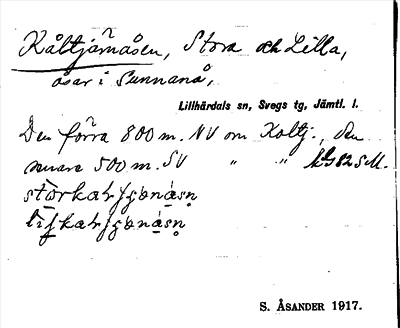 Kåltjärnåsen, Stora och Lilla,
åsar i Sunnanå,
Lillhärdals sn, Svegs tg, Jämtl. l.
Den förra 800 m. NV om Koltj., den
senare 500 m. SV " "
S. ÅSANDER 1917.